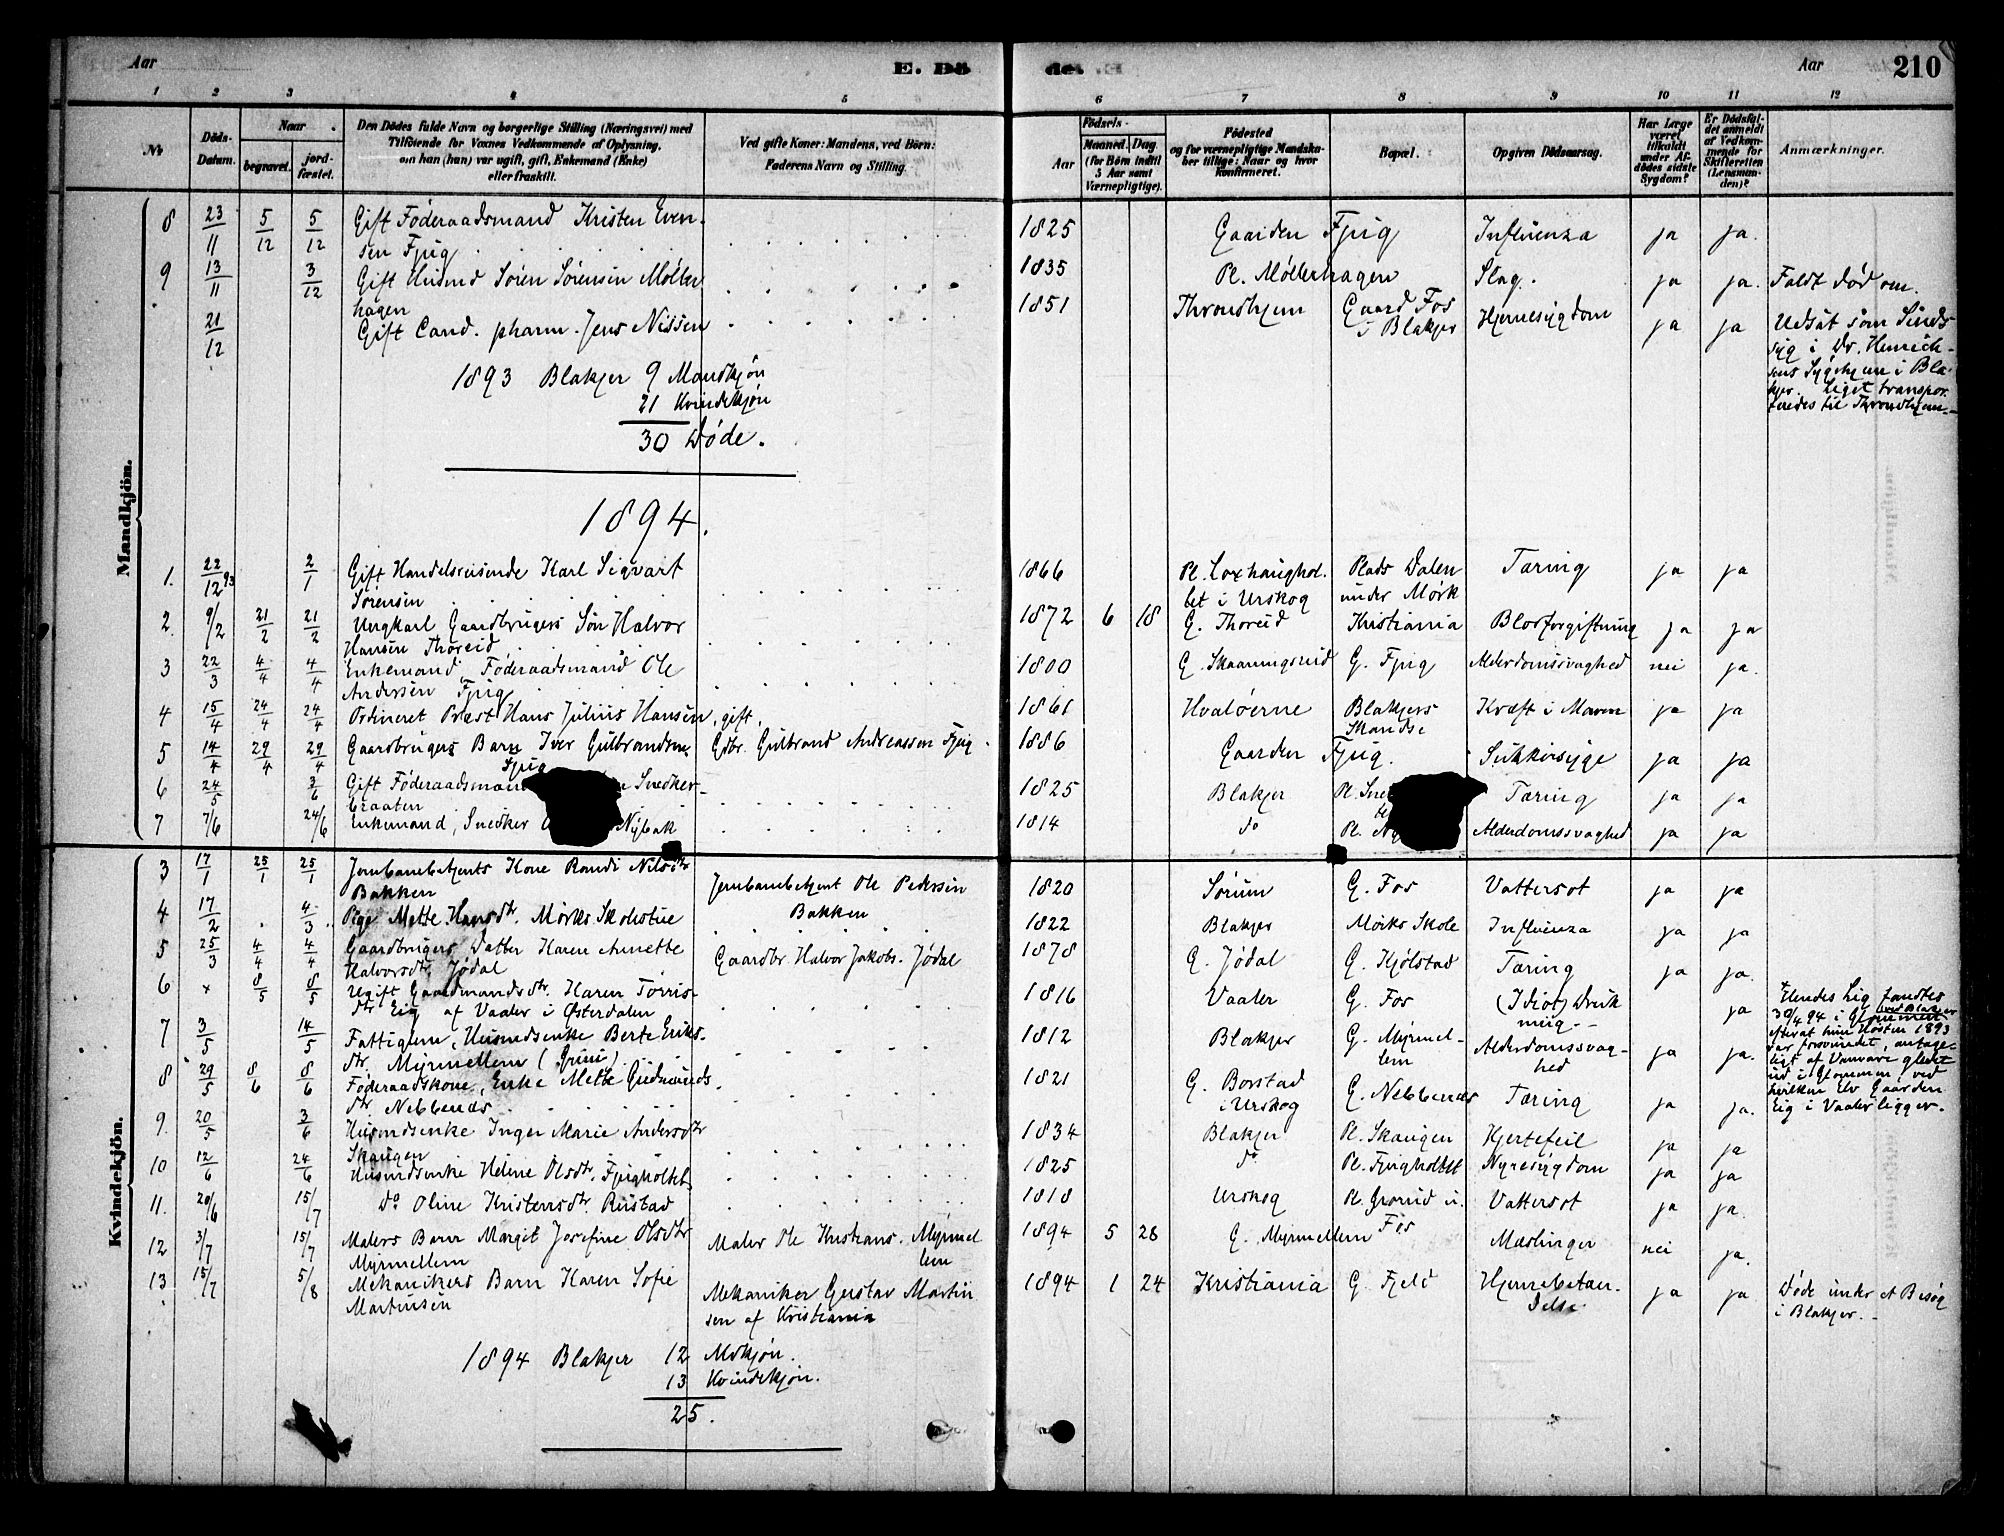 Aar
E. Dö
de. E
Aar
210
1 2 3 4 5 6 7 8 9 10 11 12
No
Döds-Datum.
Naar
begravet.
jordfæstet.
Den Dödes fulde Navn og borgerlige Stilling (Næringsvei) med
Tilföiende for Voxnes Vedkommende af Oplysning,
om han (hun) var ugift, gift, Enkemand (Enke)
eller fraskilt.
Ved gifte Koner: Mandens, ved Börn:
Faderens Navn og Stilling.
Födsels-
Aar
Maaned. Dag.
(for Börn indtil
5 Aar samt
Værnepligtige).
Födested
og for værnepligtige Mandskaber tillige: Naar og hvor
konfirmeret.
Bopæl.
Opgiven Dödsaarsag.
Har Læge
været
tilkaldt
under Afdödes sidste
Sygdom?
Er Dödsfaldet anmeldt
af Vedkommende for
Skifteretten
(Lensmanden)?
Anmærkninger.
Mandkjön.
8 23/11 5/12 5/12 Gift Föderaadsmand Kristen Even- 1825 Gaarden Fjug Influenza ja ja.
sen Fjug
9 13/11 3/12 Gift Husmd Sören Sörensen Möller 1835 Pl. Möllerhagen Slag. ja ja. Faldt död om.
hagen
21/12 Gift Cand. pharm. Jens Nissen 1851 Throndhjem Gaard Fos Hjernesygdom ja ja Udsat som Sinds
i Blakjer
syg i Dr. Henrich-
sens Sygehjem i Bla-
kjer. Liget transpor-
teredes til Throndhjem.
1893 Blakjer 9 Mandkjön
21 Kvindekjön
30 Döde.
1894.
1. 22/12 93 2/1 Gift Handelsreisende Karl Sigvart 1866 Pl. Loxhaughol- Plads Dalen Tæring ja ja
Sörensen tet i Urskog under Mörk
2 9/2 21/2 21/2 Ungkarl Gaardbrugers Sön Halvor 1872 6 18 G. Thoreid Kristiania Blodforgiftning ja ja
Hansen Thoreid
3 22/3 4/4 4/4 Enkemand, Föderaadsmand Ole 1800 G. Skaaningsrud G. Fjug Alderdomssvaghed nei ja.
Andersen Fjug
4 15/4 24/4 24/4 Ordineret Præst Hans Julius Hansen, gift, 1861 Hvalöerne Blakjers Kræft i Maven ja ja
Skandse
5 14/4 29/4 29/4 Gaardbrugers Barn Iver Gulbrandsen Gdbr. Gulbrand Andreassen Fjug 1886 Gaarden Fjug. Sukkersyge ja ja
Fjug
6 24/5 3/6 Gift Föderaadsmand Snedker- 1825 Blakjer Pl. Tæring ja ja
braaten
7 7/6 24/6 Enkemand, Snedker Nybak 1814 do Pl. Alderdomssvaghed ja ja
Kvindekjön.
3 17/1 25/1 25/1 Jernbanebetjents Kone Randi Nilsdtr Jernbanebetjent Ole Pedersen 1820 Sörum G. Fos Vattersot ja ja
Bakken Bakken
4 17/2 4/3 Pige Mette Hansdtr. Mörks Skolestue 1822 Blakjer Mörks Skole Influenza ja ja
5 25/3 4/4 4/4 Gaardbrugers Datter Karen Annette Gaardbr. Halvor Jakobs. Jödal 1878 G. Jödal G. Kjölstad Tæring ja ja.
Halvorsdtr. Jödal
6 x 8/5 8/5 Ugift Gaardmandsdtr. Karen Torris- 1816 Vaaler G. Fos (Idiot) Druk ja
dtr Eig af Vaaler i Østerdalen ning
x Hendes Lig fandtes
30/4 94 i Glommen ved Blakjer
efterat hun Hösten 1893
var forsvundet, antage-
ligt af Vanvare gledet
ud i Glommen ved
hvilken Elv Gaarden
Eig i Vaaler ligger.
7 3/5 14/5 Fattiglem, Husmdsenke Berte Eriks- 1812 Blakjer G. Myrmel- Alderdomssvag- ja ja.
dtr. Myrmellem (Grini) lem hed
8 29/5 8/6 8/6 Föderaadskone, Enke Mette Gudmunds 1821 G. Borstad G. Nebbenæs Tæring ja ja.
dtr. Nebbenæs i Urskog
9. 20/5 3/6 Husmdsenke Inger Marie Andersdtr 1834 Blakjer Pl. Skaugen Hjertefeil ja ja
Skaugen
10 12/6 24/6 Husmdsenke Helene Olsdtr. Fjugholtet 1825 do Pl. Fjugholtet Nyresygdom ja ja
11. 20/6 15/7 do Oline Kristensdtr. Rustad 1818 Urskog Pl. u. Vattersot ja ja.
Fos
12 3/7 15/7 Malers Barn Margit Josefine Olsdtr Maler Ole Kristians. Myrmel 1894 5 28 G. Myrmellem Mæslinger nei ja.
Myrmellem lem
13 15/7 5/8 Mekanikers Barn Karen Sofie Mekaniker Gustav Martin 1894 1 24 Kristiania G. Fjeld Hjernebetæn- ja ja Döde under et Besög
Martinsen sen af Kristiania delse. i Blakjer.
1894 Blakjer 12 Mdkjön.
13 Kvindekjön.
25.